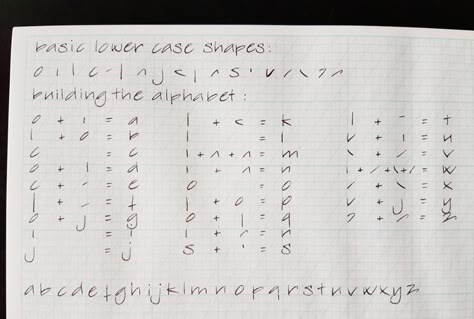 basic lower case shapes:
building the alphabet:
o + ı = a
l + o = b
c = c
o + l = d
c + - = e
l + - = f
o + j = g
i = i
j = j
l + c = k
l = l
ı + n + n = m
ı + n = n
o = o
l + o = p
o + l = q
ı + r = r
s + ' = s
l + - = t
v + ı = u
\ + / = v
\ + / + \ + / = w
/ + \ = x
v + j = y
abcdefghijklmnopqrstuvwxyz